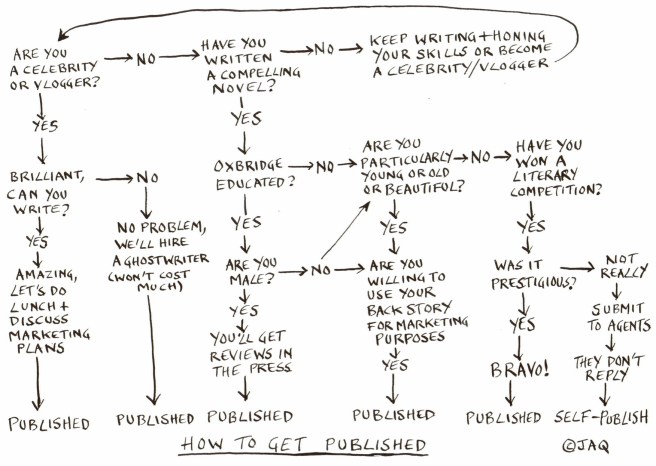 ARE YOU
A CELEBRITY
OR VLOGGER?
NO
HAVE YOU
WRITTEN
A COMPELLING
NOVEL?
NO
KEEP WRITING + HONING
YOUR SKILLS OR BECOME
A CELEBRITY/VLOGGER
YES
YES
BRILLIANT,
CAN YOU
WRITE?
NO
OXBRIDGE
EDUCATED?
NO
ARE YOU
PARTICULARLY
YOUNG OR OLD
OR BEAUTIFUL?
NO
HAVE YOU
WON A
LITERARY
COMPETITION?
YES
NO PROBLEM,
WE'LL HIRE
A GHOSTWRITER
(WON'T COST
MUCH)
YES
YES
YES
AMAZING,
LET'S DO
LUNCH +
DISCUSS
MARKETING
PLANS
ARE YOU
MALE?
NO
ARE YOU
WILLING TO
USE YOUR
BACK STORY
FOR MARKETING
PURPOSES
WAS IT
PRESTIGIOUS?
NOT
REALLY
YES
YOU'LL GET
REVIEWS IN
THE PRESS
YES
YES
BRAVO!
SUBMIT
TO AGENTS
THEY DON'T
REPLY
PUBLISHED
PUBLISHED
PUBLISHED
PUBLISHED
PUBLISHED
SELF-PUBLISH
HOW TO GET PUBLISHED
©JAQ